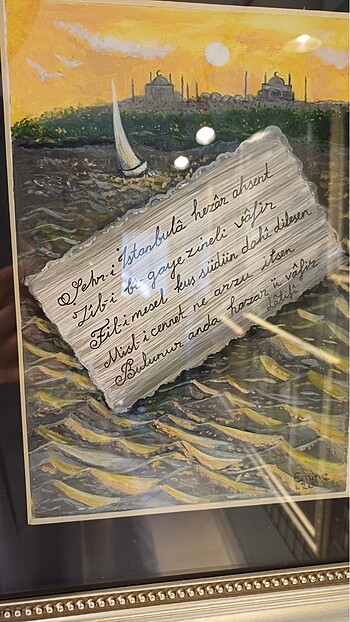 Şehr-i İstanbulâ hezâr ahsent
Zib-i bi gaye zineli vâfir
Fil-i mesel kuş südün dahî dilesen
Misl-i cennet ne arzu itsen
Bulunur anda hazar ü vâfir
Lâtifî